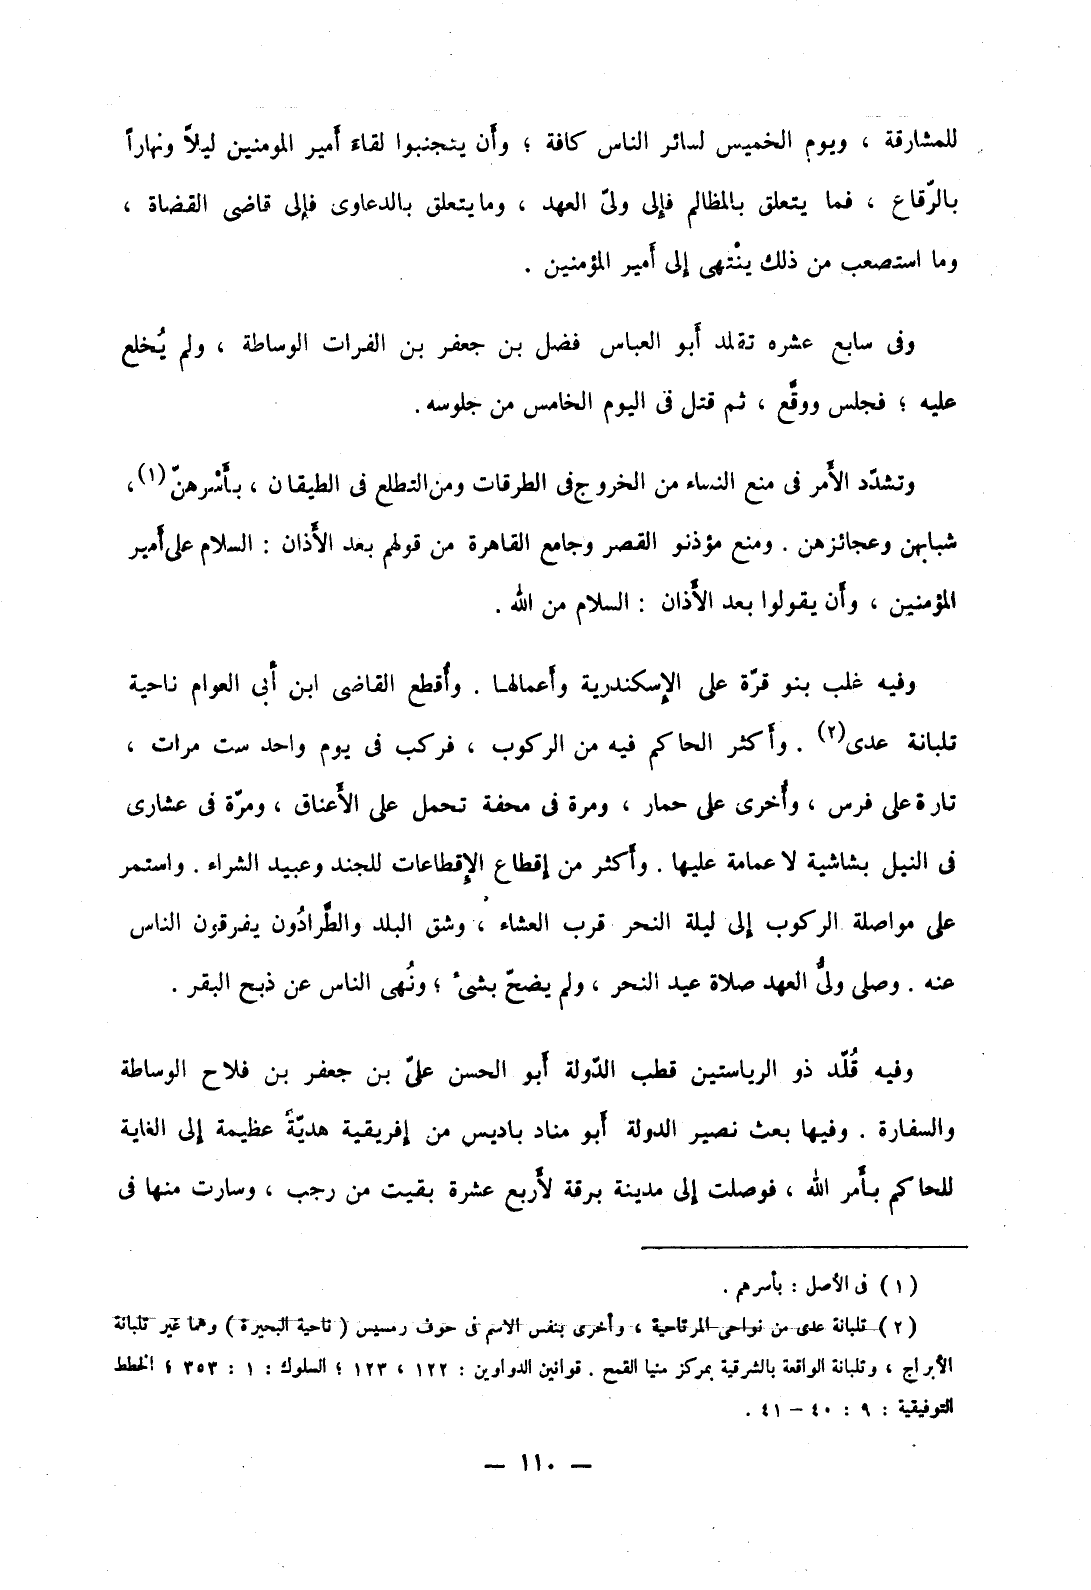 للمشارقة ، ويوم الخميس لسائر الناس كافة ؛ وأن يتجنبوا لقاء أمير المومنين ليلاً ونهاراً
بالرّقاع ، فما يتعلق بالمظالم فإلى ولىّ العهد ، وما يتعلق بالدعاوى فإلى قاضى القضاة ،
وما استصعب من ذلك ينْتهى إلى أمير المؤمنين .
وفى سابع عشره تقلد أبو العباس فضل بن جعفر بن الفرات الوساطة ، ولم يُخلع
عليه ؛ فجلس ووقَّع ، ثم قتل فى اليوم الخامس من جلوسه .
وتشدّد الأمر فى منع النساء من الخروج فى الطرقات ومن التطلع فى الطيقان ، بأَسْرهنّ (١) ،
شبابهن وعجائزهن . ومنع مؤذنو القصر وجامع القاهرة من قولهم بعد الأذان : السلام على أمير
المؤمنين ، وأن يقولوا بعد الأذان : السلام من الله .
وفيه غلب بنو قرّة على الإسكندرية وأعمالها . وأُقطع القاضى ابن أبى العوام ناحية
تلبانة عدى (٢) . وأكثر الحاكم فيه من الركوب ، فركب فى يوم واحد ست مرات ،
تارة على فرس ، وأُخرى على حمار ، ومرة فى محفة تحمل على الأعناق ، ومرّة فى عشارى
فى النيل بشاشية لا عمامة عليها . وأكثر من إقطاع الإقطاعات للجند وعبيد الشراء . واستمر
على مواصلة الركوب إلى ليلة النحر قرب العشاء ، وشق البلد والطَّرادُون يفرقون الناس
عنه . وصلى ولىُّ العهد صلاة عيد النحر ، ولم يضحّ بشىء ؛ ونُهى الناس عن ذبح البقر .
وفيه قُلّد ذو الرياستين قطب الدّولة أبو الحسن علىّ بن جعفر بن فلاح الوساطة
والسفارة . وفيها بعث نصير الدولة أبو مناد باديس من إفريقية هديّةً عظيمة إلى الغاية
للحاكم بأمر الله ، فوصلت إلى مدينة برقة لأربع عشرة بقيت من رجب ، وسارت منها فى
(١) فى الأصل : بأسرهم .
(٢) تلبانة عدى من نواحى المرتاحية ، وأخرى بنفس الاسم فى حوف رمسيس (ناحية البحيرة) وهما غير تلبانة
الأبراج ، وتلبانة الواقعة بالشرقية بمركز منيا القمح . قوانين الدواوين : ١٢٢ ، ١٢٣ ؛ السلوك : ١ : ٣٥٣ ؛ الخطط
التوفيقية : ٩ : ٤٠ – ٤١ .
— ١١٠ —